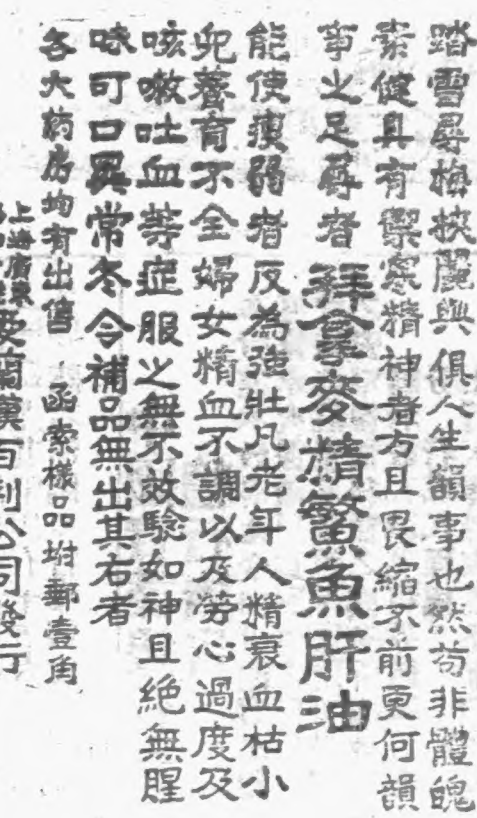 踏雪尋梅挾麗與俱人生韻事也然苟非體魄
素健具有禦寒精神者方且畏縮不前更何韻
事之足尋者 拜拿麥精鰵魚肝油
能使瘦弱者反為強壯凡老年人精衰血枯小
兒養育不全婦女精血不調以及勞心過度及
咳嗽吐血等症服之無不效驗如神且絕無腥
味可口異常冬令補品無出其右者
各大药房均有出售 函索樣品坿郵壹角
上海廣東
愛蘭漢百利公司發行